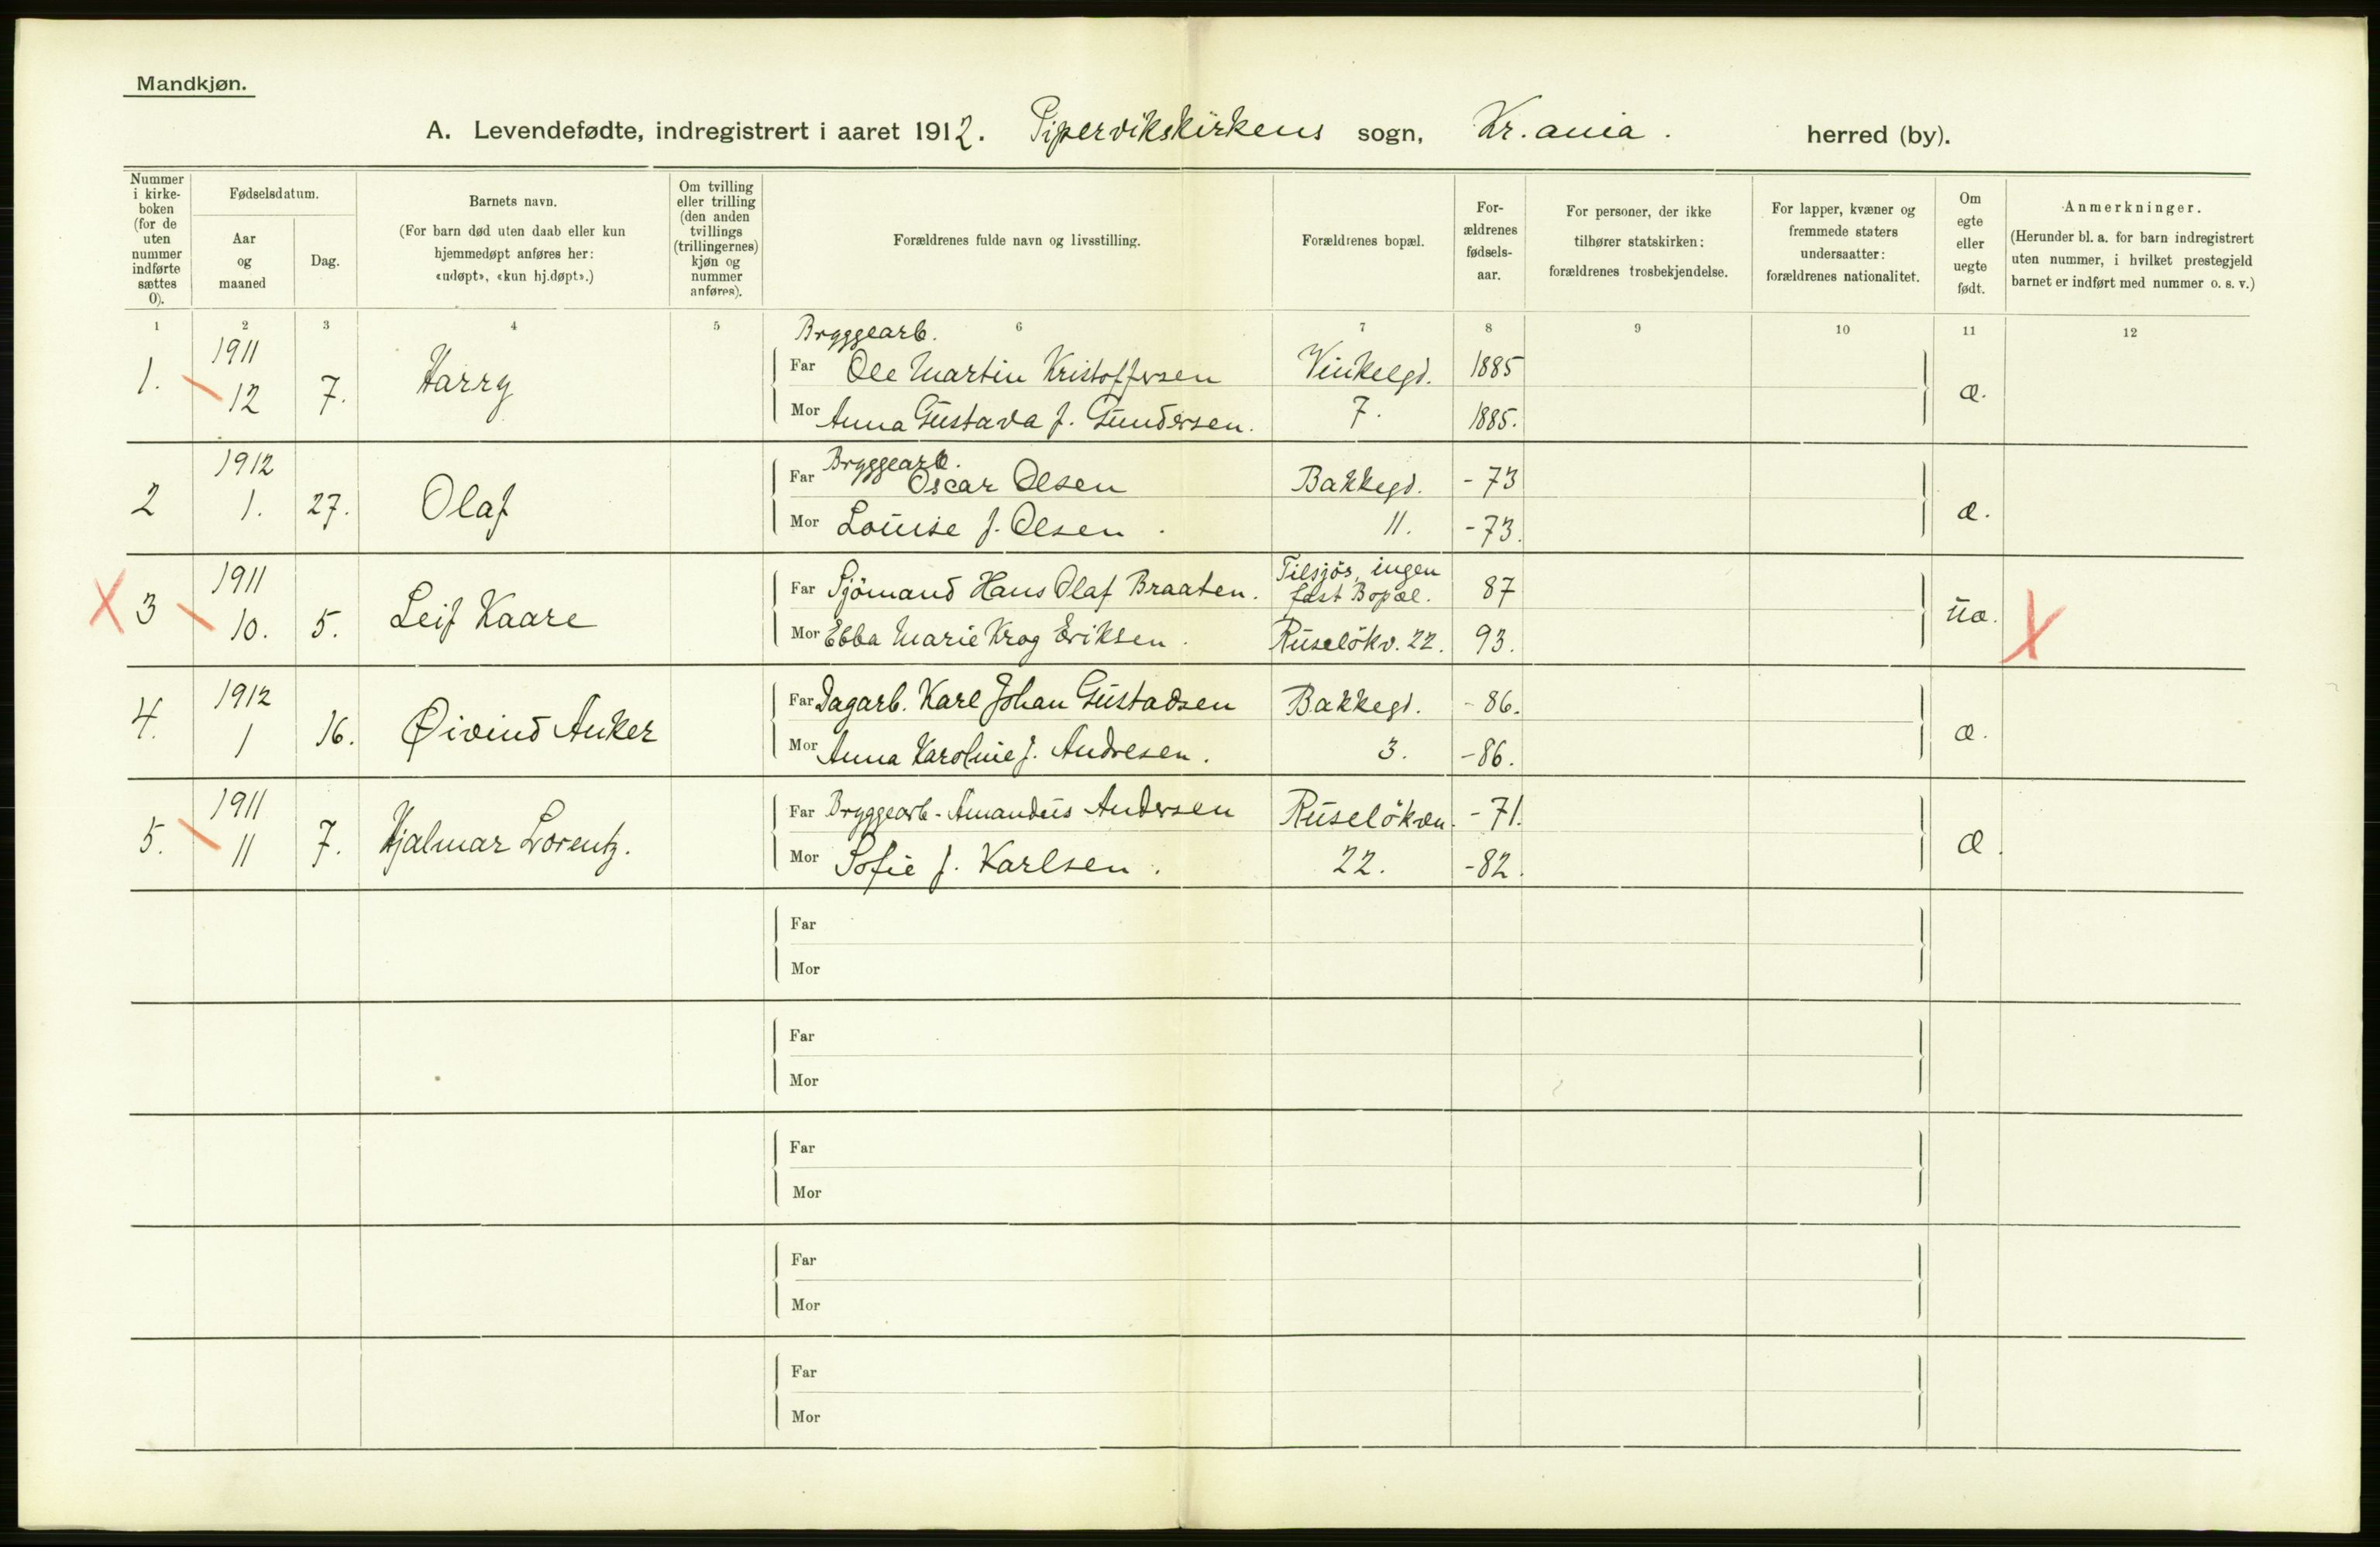 Mandkjøn.
A. Levendefødte, indregistrert i aaret 1912. Pipervikskirkens sogn, Kr.ania. herred (by).
Nummer i kirke-boken (for de uten nummer indførte sættes 0).
Fødselsdatum.
Aar og maaned
Dag.
Barnets navn.
(For barn død uten daab eller kun hjemmedøpt anføres her: «udøpt», «kun hj.døpt».)
Om tvilling eller trilling (den anden tvillings (trillingernes) kjøn og nummer anføres).
Forældrenes fulde navn og livsstilling.
Forældrenes bopæl.
For-ældrenes fødsels-aar.
For personer, der ikke tilhører statskirken: forældrenes trosbekjendelse.
For lapper, kvæner og fremmede staters undersaatter: forældrenes nationalitet.
Om egte eller uegte født.
Anmerkninger.
(Herunder bl. a. for barn indregistrert uten nummer, i hvilket prestegjeld barnet er indført med nummer o. s. v.)
1 2 3 4 5 6 7 8 9 10 11 12
1. 1911 12 7. Harry
Bryggearb.
Far Ole Martin Kristoffersen Vinkelgd. 1885
Mor Anna Gustava f. Gundersen. 7. 1885.
æ.
2 1912 1. 27. Olaf
Bryggearb.
Far Oscar Olsen Bakkegd. -73
Mor Louise f. Olsen. 11. -73.
æ.
X 3 1911 10. 5. Leif Kaare
Far Sjömand Hans Olaf Braaten. Tilsjös, ingen fast Bopæl. 87
Mor Ebba Marie Krog Eriksen. Ruselökv. 22. 93.
uæ. X
4. 1912 1 16. Øivind Anker
Far Dagarb. Karl Johan Gustadsen Bakkegd. -86.
Mor Anna Karoline f. Andresen. 3. -86.
æ.
5. 1911 11 7. Hjalmar Lorentz.
Far Bryggearb- Amandus Andersen Ruselökvn. -71.
Mor Sofie f. Karlsen. 22. -82.
æ.
Far
Mor
Far
Mor
Far
Mor
Far
Mor
Far
Mor